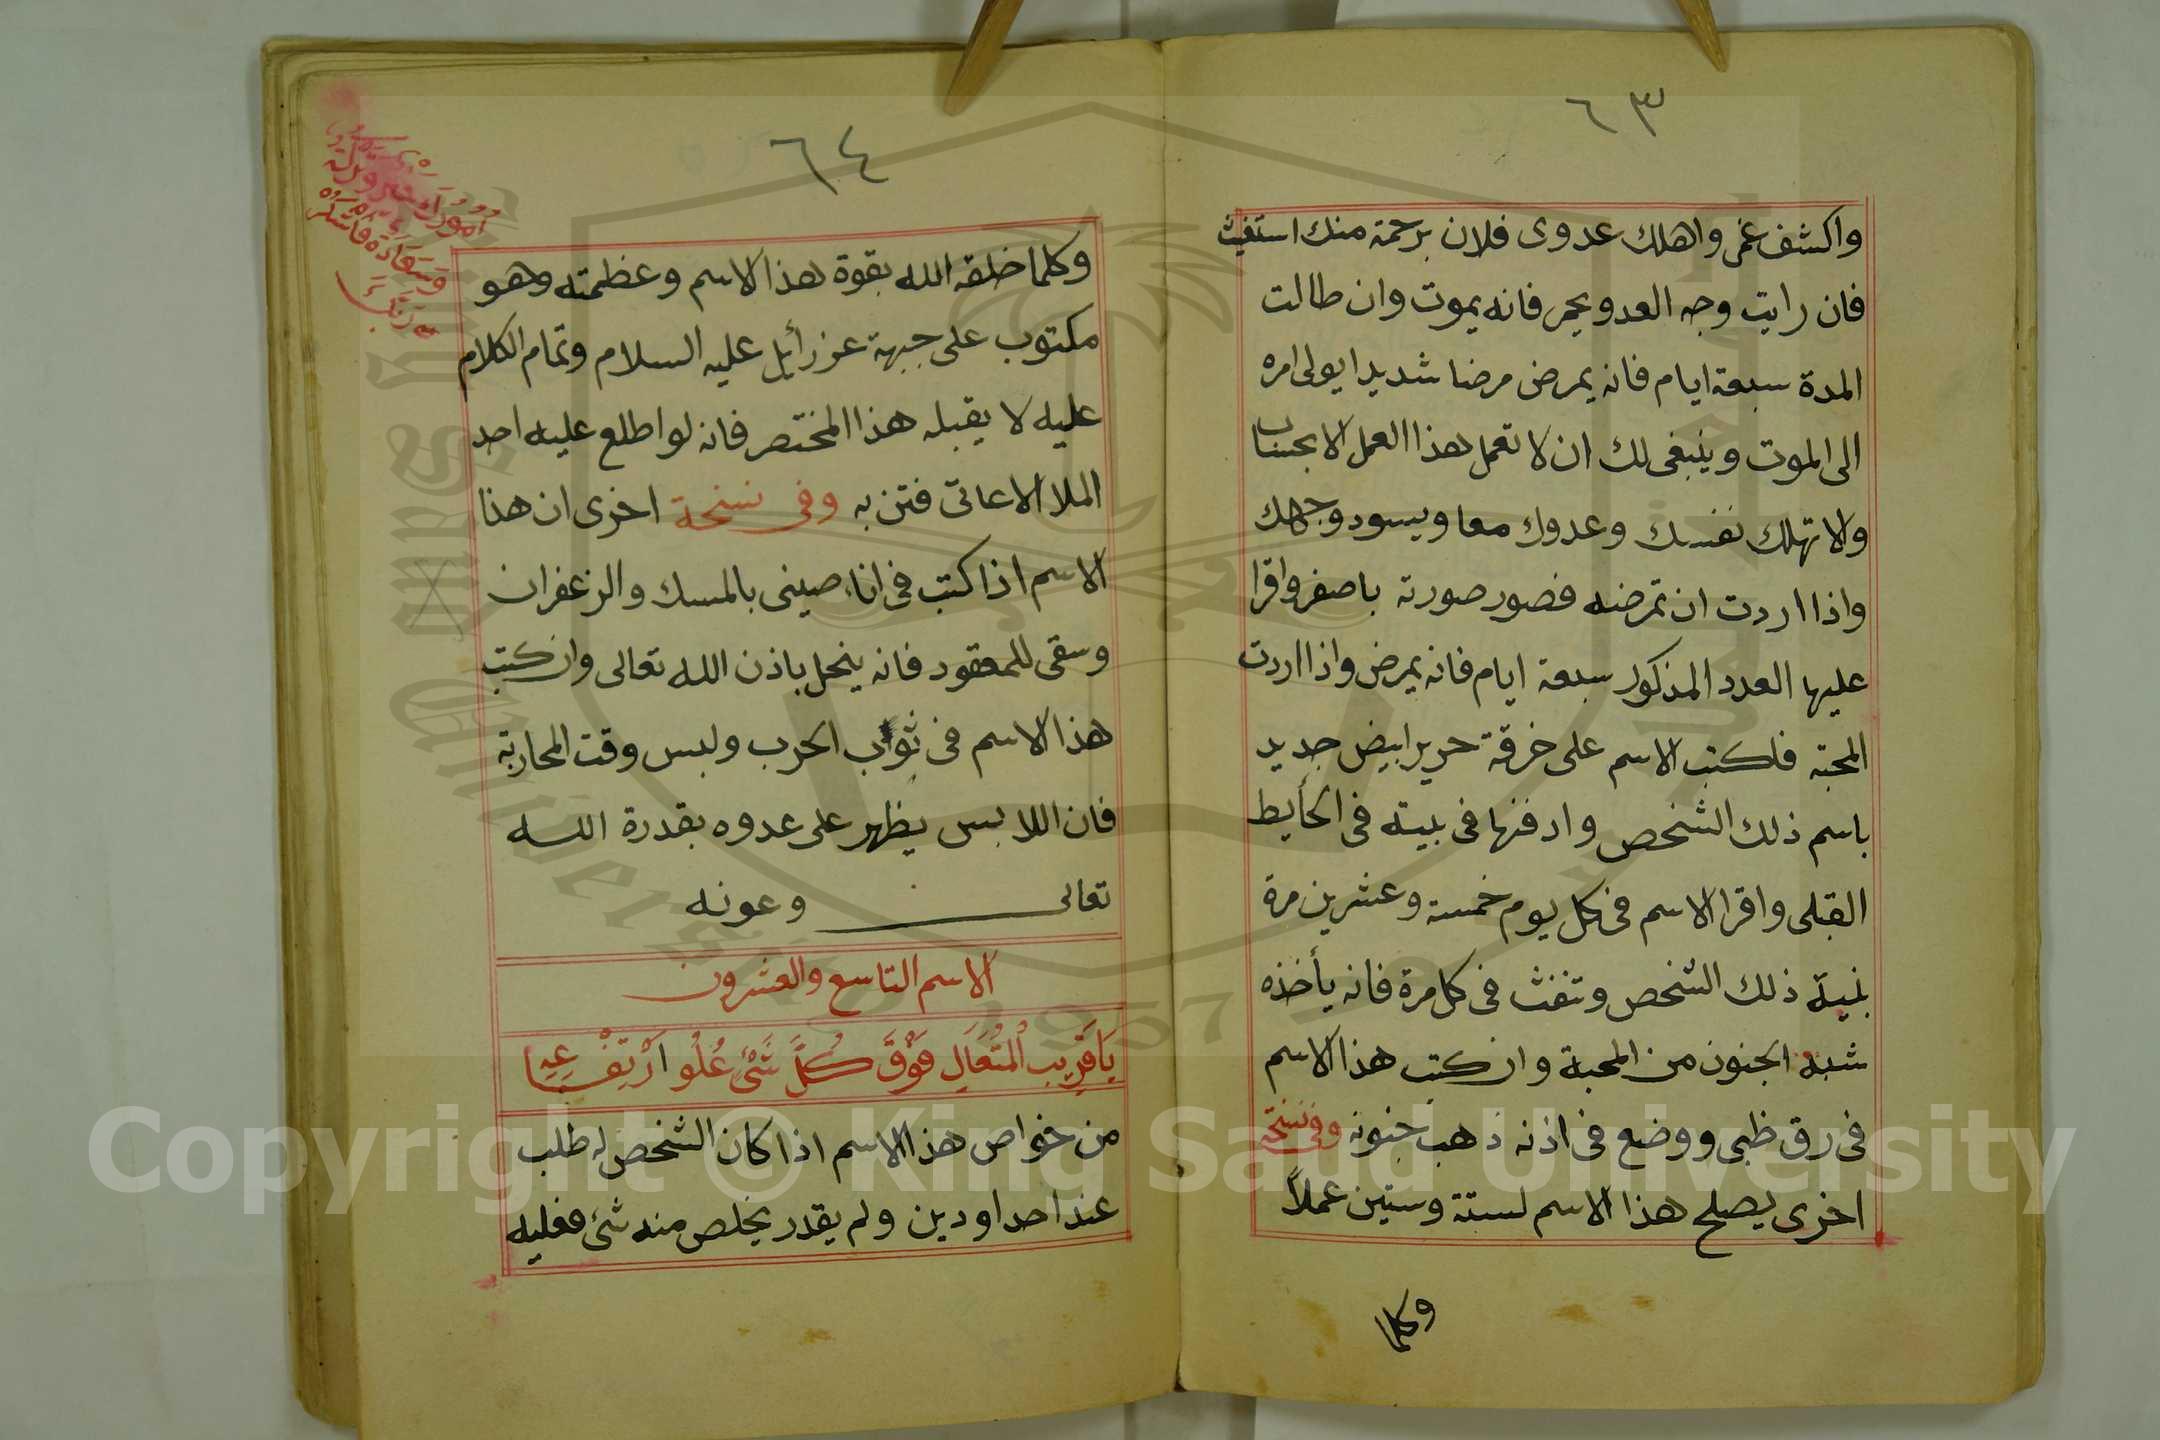 ٦٣
واكشف غمى واهلك عدوى فلان برحمة منك استغيث
فان رايت وجه العدو يحمر فانه يموت وان طالت
المدة سبعة ايام فانه يمرض مرضا شديدا يولى امره
الى الموت وينبغى لك ان لا تعمل هذا العمل الا بحساب
والا تهلك نفسك وعدوك معا ويسود وجهك
واذا اردت ان تمرضه فصور صورته باصفر واقرا
عليها العدد المذكور سبعة ايام فانه يمرض واذا اردت
المحبة فلكتب الاسم على خرقة حرير ابيض جديد
باسم ذلك الشخص وادفنها فى بيته فى الحأيط
القبلى واقرا الاسم فى كل يوم خمسة وعشرين مرة
بنية ذلك الشخص وتنفث فى كل مرة فانه يأخذه
شبه الجنون من المحبة وان كتب هذا الاسم
فى رق ظبى ووضع فى اذنه ذهب جنونه وفى نسخة
اخرى يصلح هذا الاسم لستة وستين عملاً
وكلما
٦٤
وكلما خلقه الله بقوة هذا الاسم وعظمته وهو
مكتوب على جبهة عزرأيل عليه السلام وتمام الكلام
عليه لا يقبله هذا المختصر فانه لو اطلع عليه احد
الملا الاعاتى فتن به وفى نسخة اخرى ان هذا
الاسم اذا كتب فى اناء صينى بالمسك والزعفران
وسقى للمعقود فانه ينحل باذن الله تعالى وان كتب
هذا الاسم فى ثواب الحرب ولبس وقت المحاربة
فان اللابس يظهر على عدوه بقدرة الله
تعالى وعونه
الاسم التاسع والعشرون
يَا قَرِيب الْمُتَعَالِ فَوْقَ كُلِّ شَىْءٍ عُلُو اَرْتِفَاعِهِ
من خواص هذا الاسم اذا كان الشخص له طلب
عند احد او دين ولم يقدر يخلص منه شئ فعليه
اُمُورُ
وَسَعَادَة فَاشْكُرُ
رَبَّكَ
Copyright © King Saud University
1957